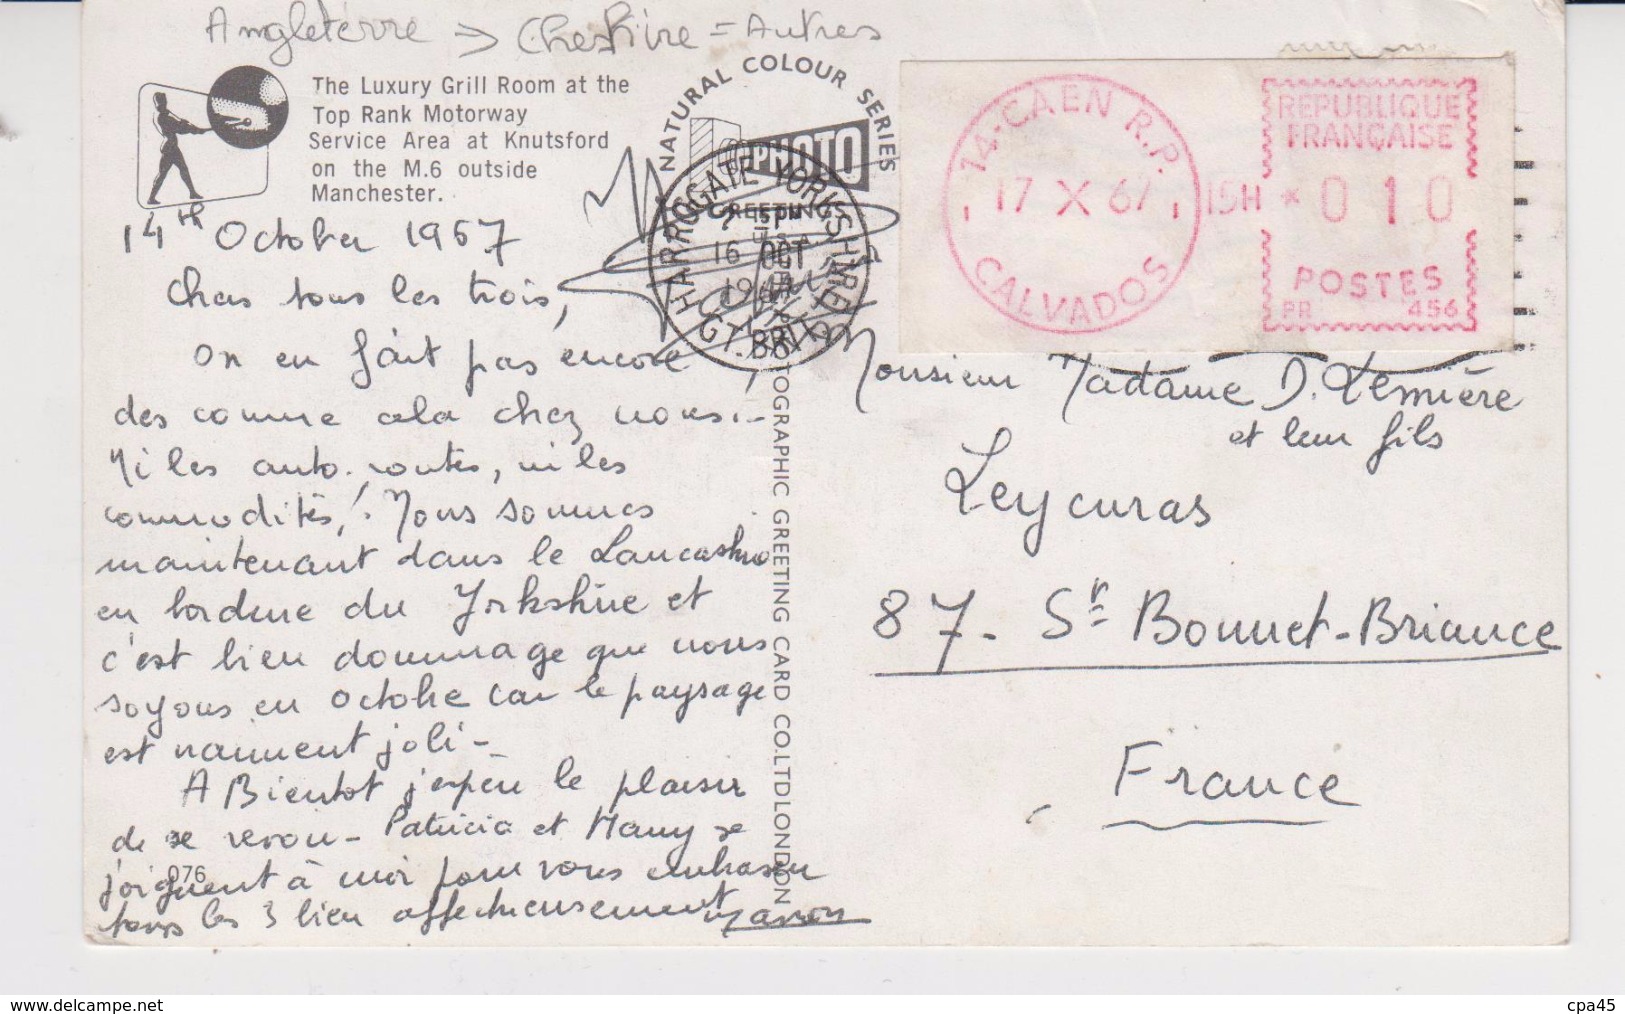 Angleterre => Cheshire = Autres
The Luxury Grill Room at the
Top Rank Motorway
Service Area at Knutsford
on the M.6 outside
Manchester.
NATURAL COLOUR SERIES
PHOTO
GREETINGS
HARROGATE YORKSHIRE
16 OCT
GT. BRITAIN
14-CAEN R.P.
17 X 67
15H
CALVADOS
REPUBLIQUE
FRANÇAISE
* 0 1 0
POSTES
PR 456
14th October 1967
Chers tous les trois,
On en fait pas encore
des comme cela chez nous..
Ni les auto-routes, ni les
commodités! Nous sommes
maintenant dans le Lancashire
en bordure du Yorkshire et
c'est bien dommage que nous
soyons en octobre car le paysage
est vraiment joli -
A Bientot j'espère le plaisir
de se revoir - Patricia et Mary se
joignent à moi pour vous embrasser
tous les 3 bien affectueusement
076
TOGRAPHIC GREETING CARD CO.LTD LONDON
Monsieur Madame D. Lemière
et leur fils
Leycuras
87 - St Bonnet-Briance
France
www.delcampe.net
cpa45